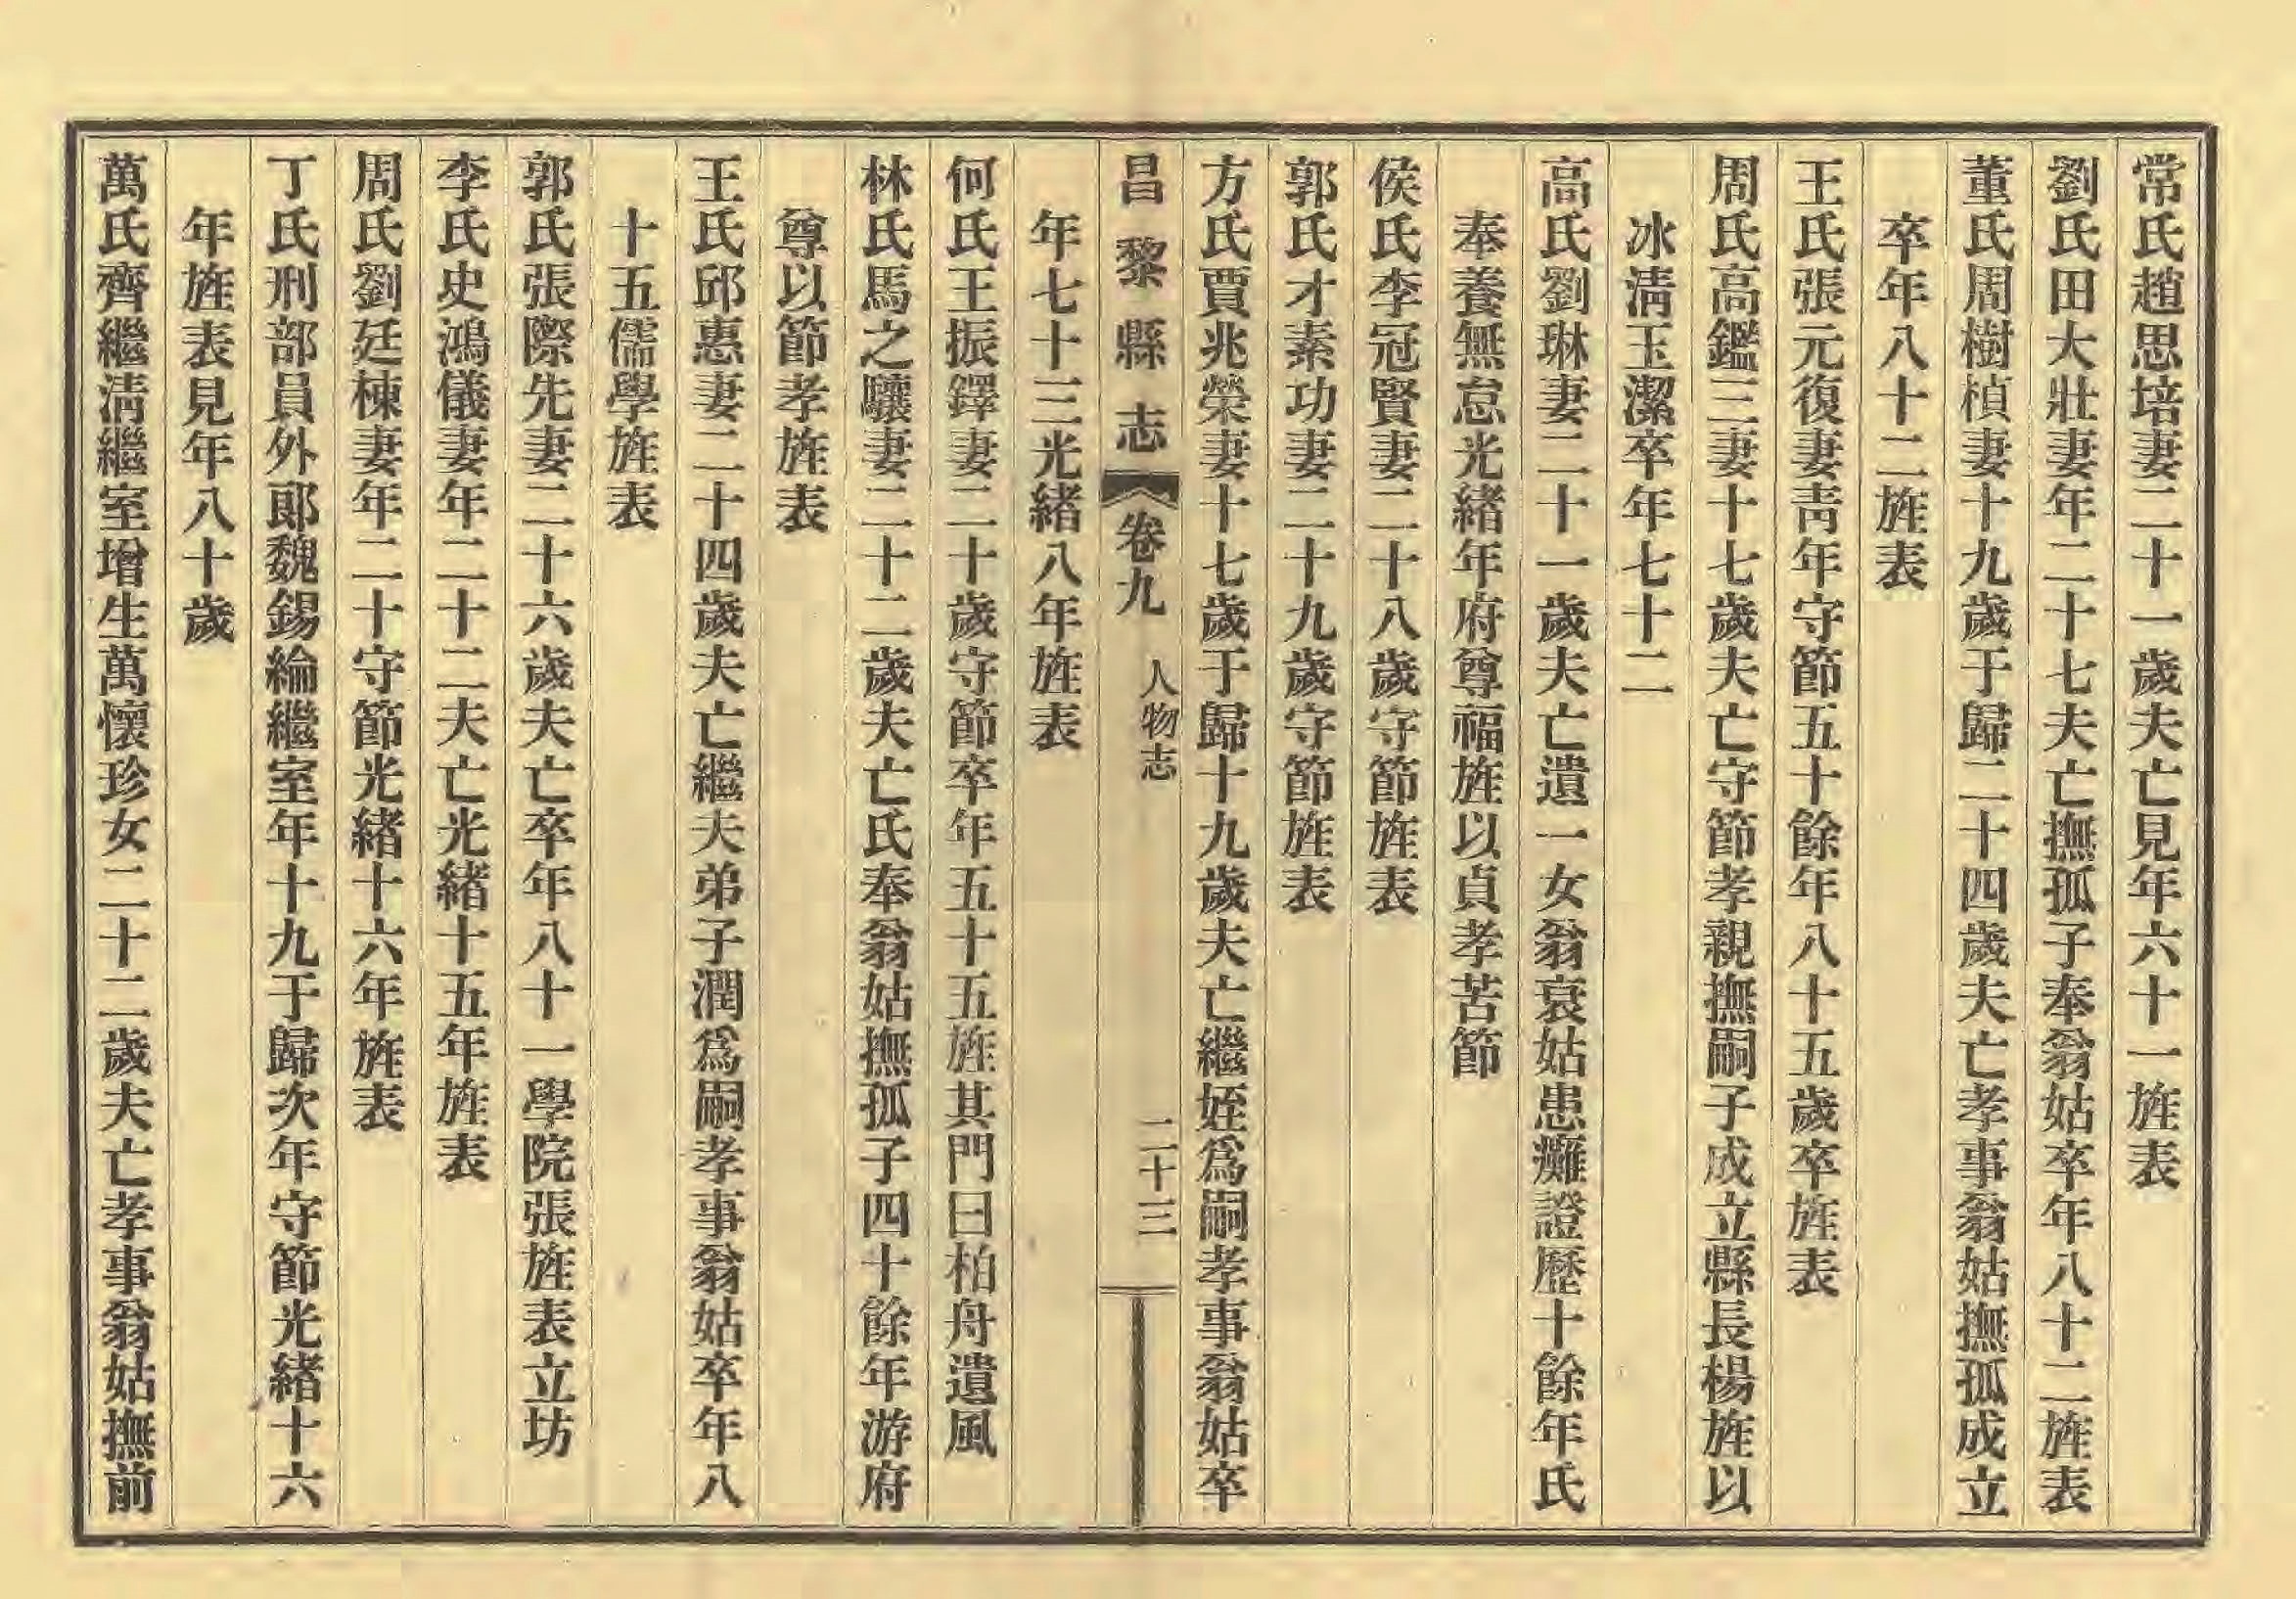 常氏趙思培妻二十一歲夫亡見年六十一旌表
劉氏田大壯妻年二十七夫亡撫孤子奉翁姑卒年八十二旌表
董氏周樹楨妻十九歲于歸二十四歲夫亡孝事翁姑撫孤成立
卒年八十二旌表
王氏張元復妻靑年守節五十餘年八十五歲卒旌表
周氏高鑑三妻十七歲夫亡守節孝親撫嗣子成立縣長楊旌以
冰淸玉潔卒年七十二
高氏劉琳妻二十一歲夫亡遺一女翁哀姑患癱證歷十餘年氏
奉養無怠光緒年府尊福旌以貞孝苦節
侯氏李冠賢妻二十八歲守節旌表
郭氏才素功妻二十九歲守節旌表
方氏賈兆榮妻十七歲于歸十九歲夫亡繼姪爲嗣孝事翁姑卒
昌黎縣志 卷九 人物志 二十三
年七十三光緒八年旌表
何氏王振鐸妻二十歲守節卒年五十五旌其門曰柏舟遺風
林氏馬之驤妻二十二歲夫亡氏奉翁姑撫孤子四十餘年游府
尊以節孝旌表
王氏邱惠妻二十四歲夫亡繼夫弟子潤爲嗣孝事翁姑卒年八
十五儒學旌表
郭氏張際先妻二十六歲夫亡卒年八十一學院張旌表立坊
李氏史鴻儀妻年二十二夫亡光緒十五年旌表
周氏劉廷棟妻年二十守節光緒十六年旌表
丁氏刑部員外郞魏錫綸繼室年十九于歸次年守節光緒十六
年旌表見年八十歲
萬氏齊繼淸繼室增生萬懷珍女二十二歲夫亡孝事翁姑撫前